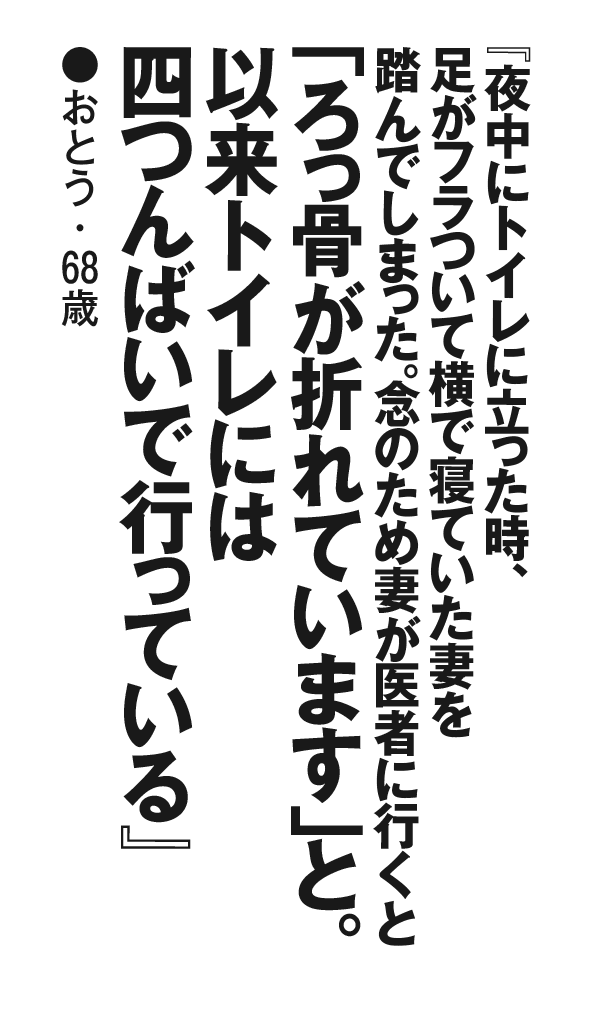 『夜中にトイレに立った時、
足がフラついて横で寝ていた妻を
踏んでしまった。念のため妻が医者に行くと
「ろっ骨が折れています」と。
以来トイレには
四つんばいで行っている』
●おとう・68歳